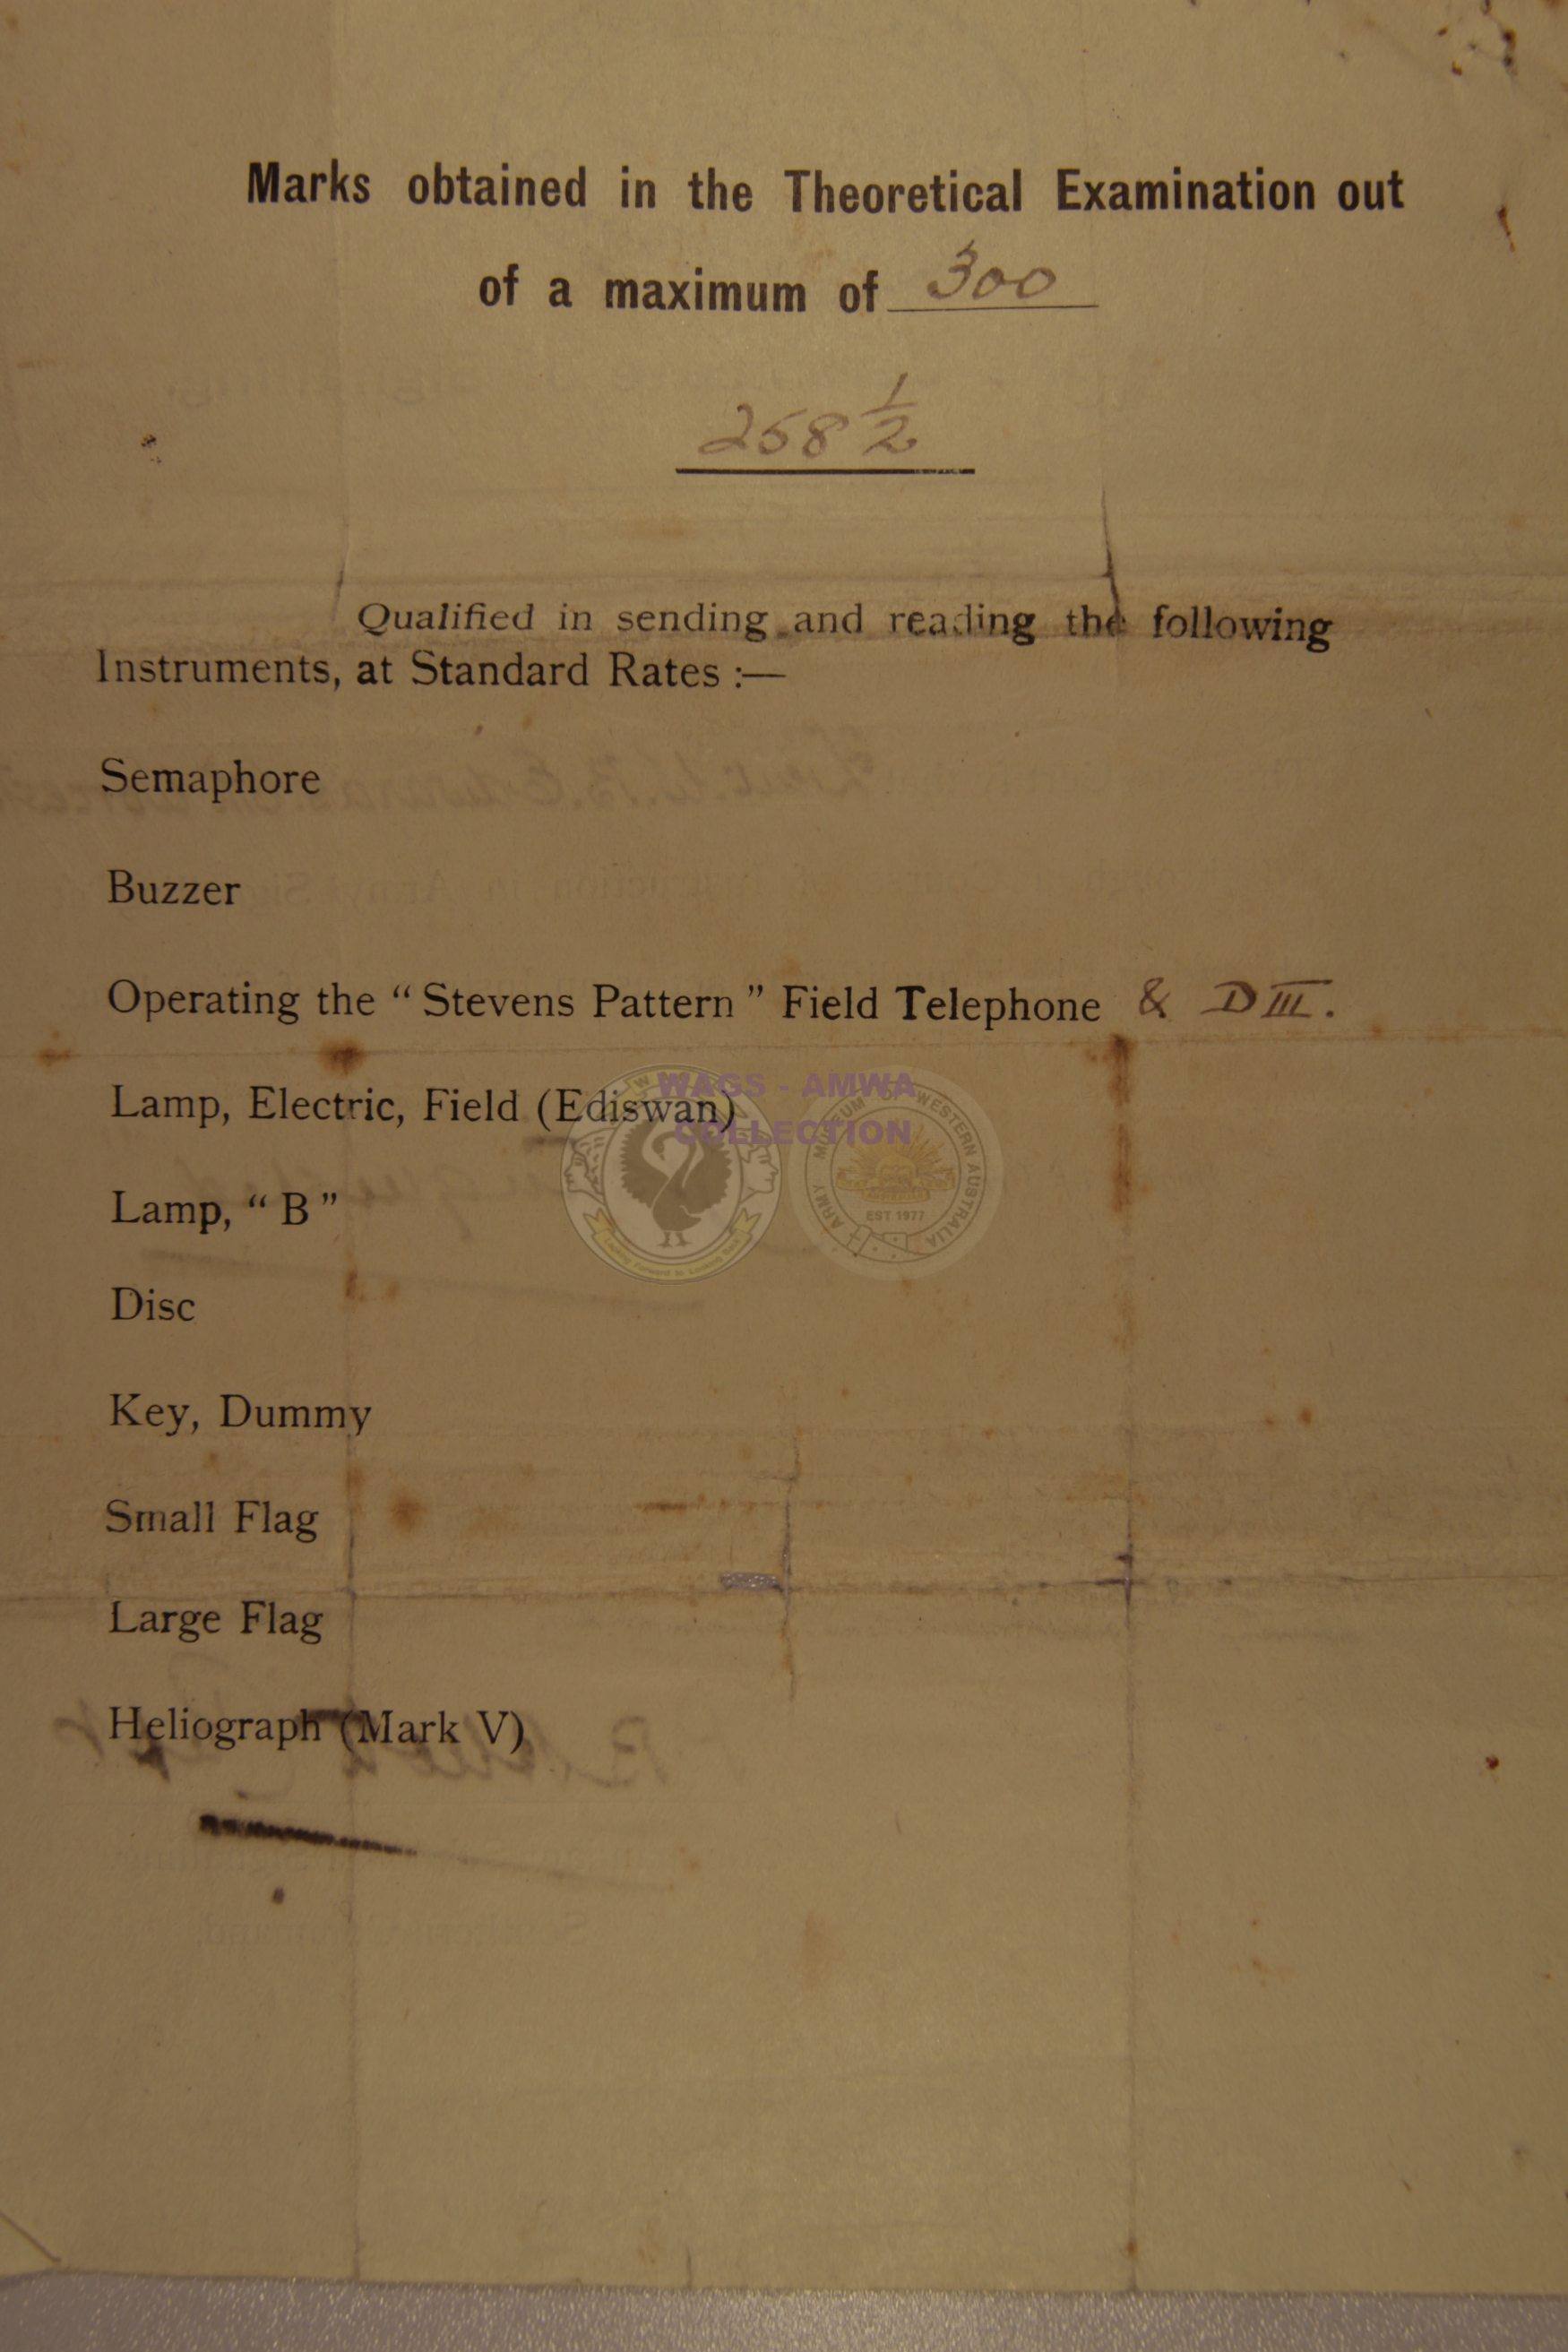 Marks obtained in the Theoretical Examination out
of a maximum of 300
258 1/2
Qualified in sending and reading the following
Instruments, at Standard Rates :—
Semaphore
Buzzer
Operating the “ Stevens Pattern ” Field Telephone & D III.
WAGS - AMWA
Lamp, Electric, Field (Ediswan)
COLLECTION
ARMY MUSEUM OF WESTERN AUSTRALIA
EST 1977
Lamp, “ B ”
Disc
Key, Dummy
Small Flag
Large Flag
Heliograph (Mark V)